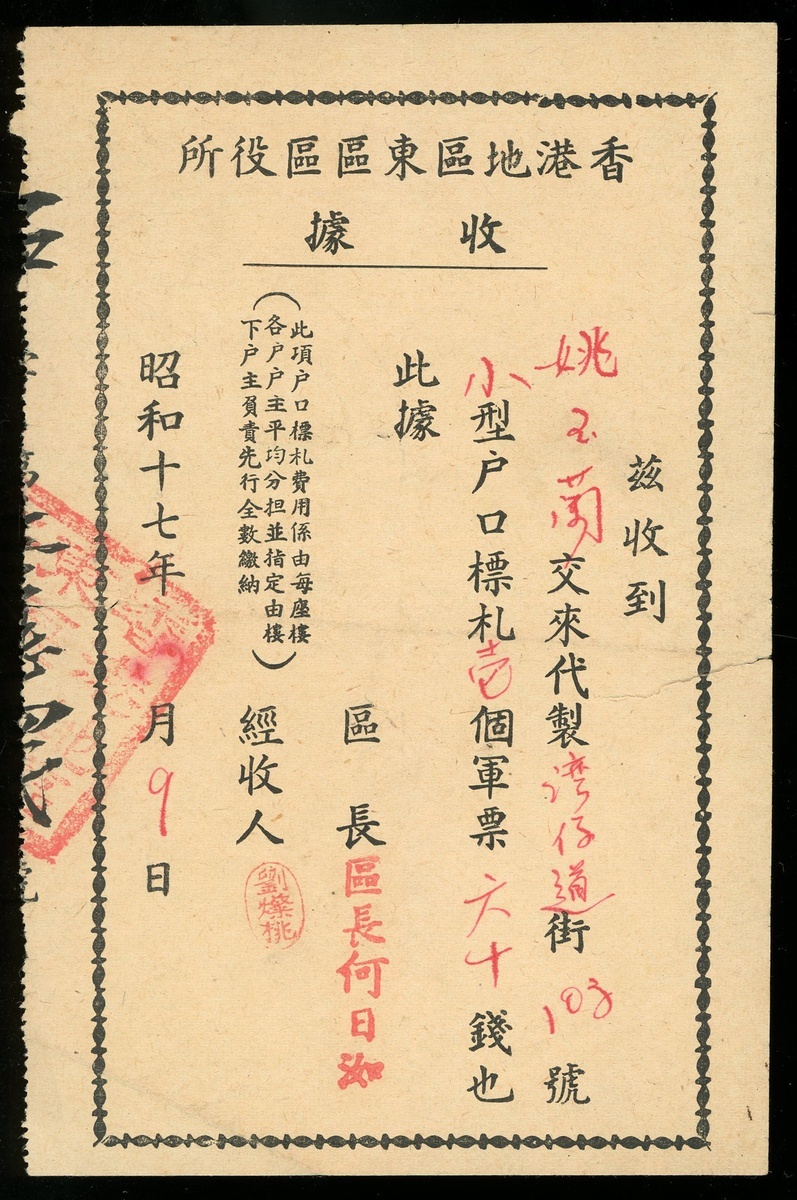 香港地區東區區役所
收據
茲收到
姚玉蘭交來代製灣仔道街103號
小型户口標札壱個軍票六十錢也
此據
區長區長何日洳
(此項户口標札費用係由每座樓
各户户主平均分担並指定由樓
下户主負責先行全數繳納)
經收人劉燦桃
昭和十七年 月9日